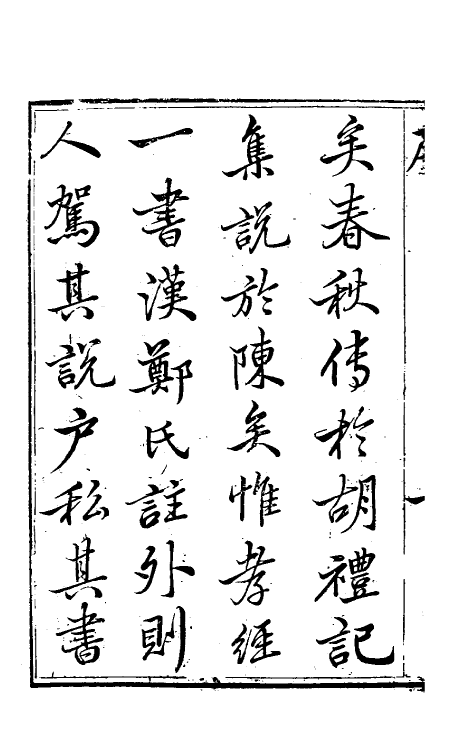 矣春秋傳於胡禮記
集說於陳矣惟孝經
一書漢鄭氏註外則
人駕其說户私其書